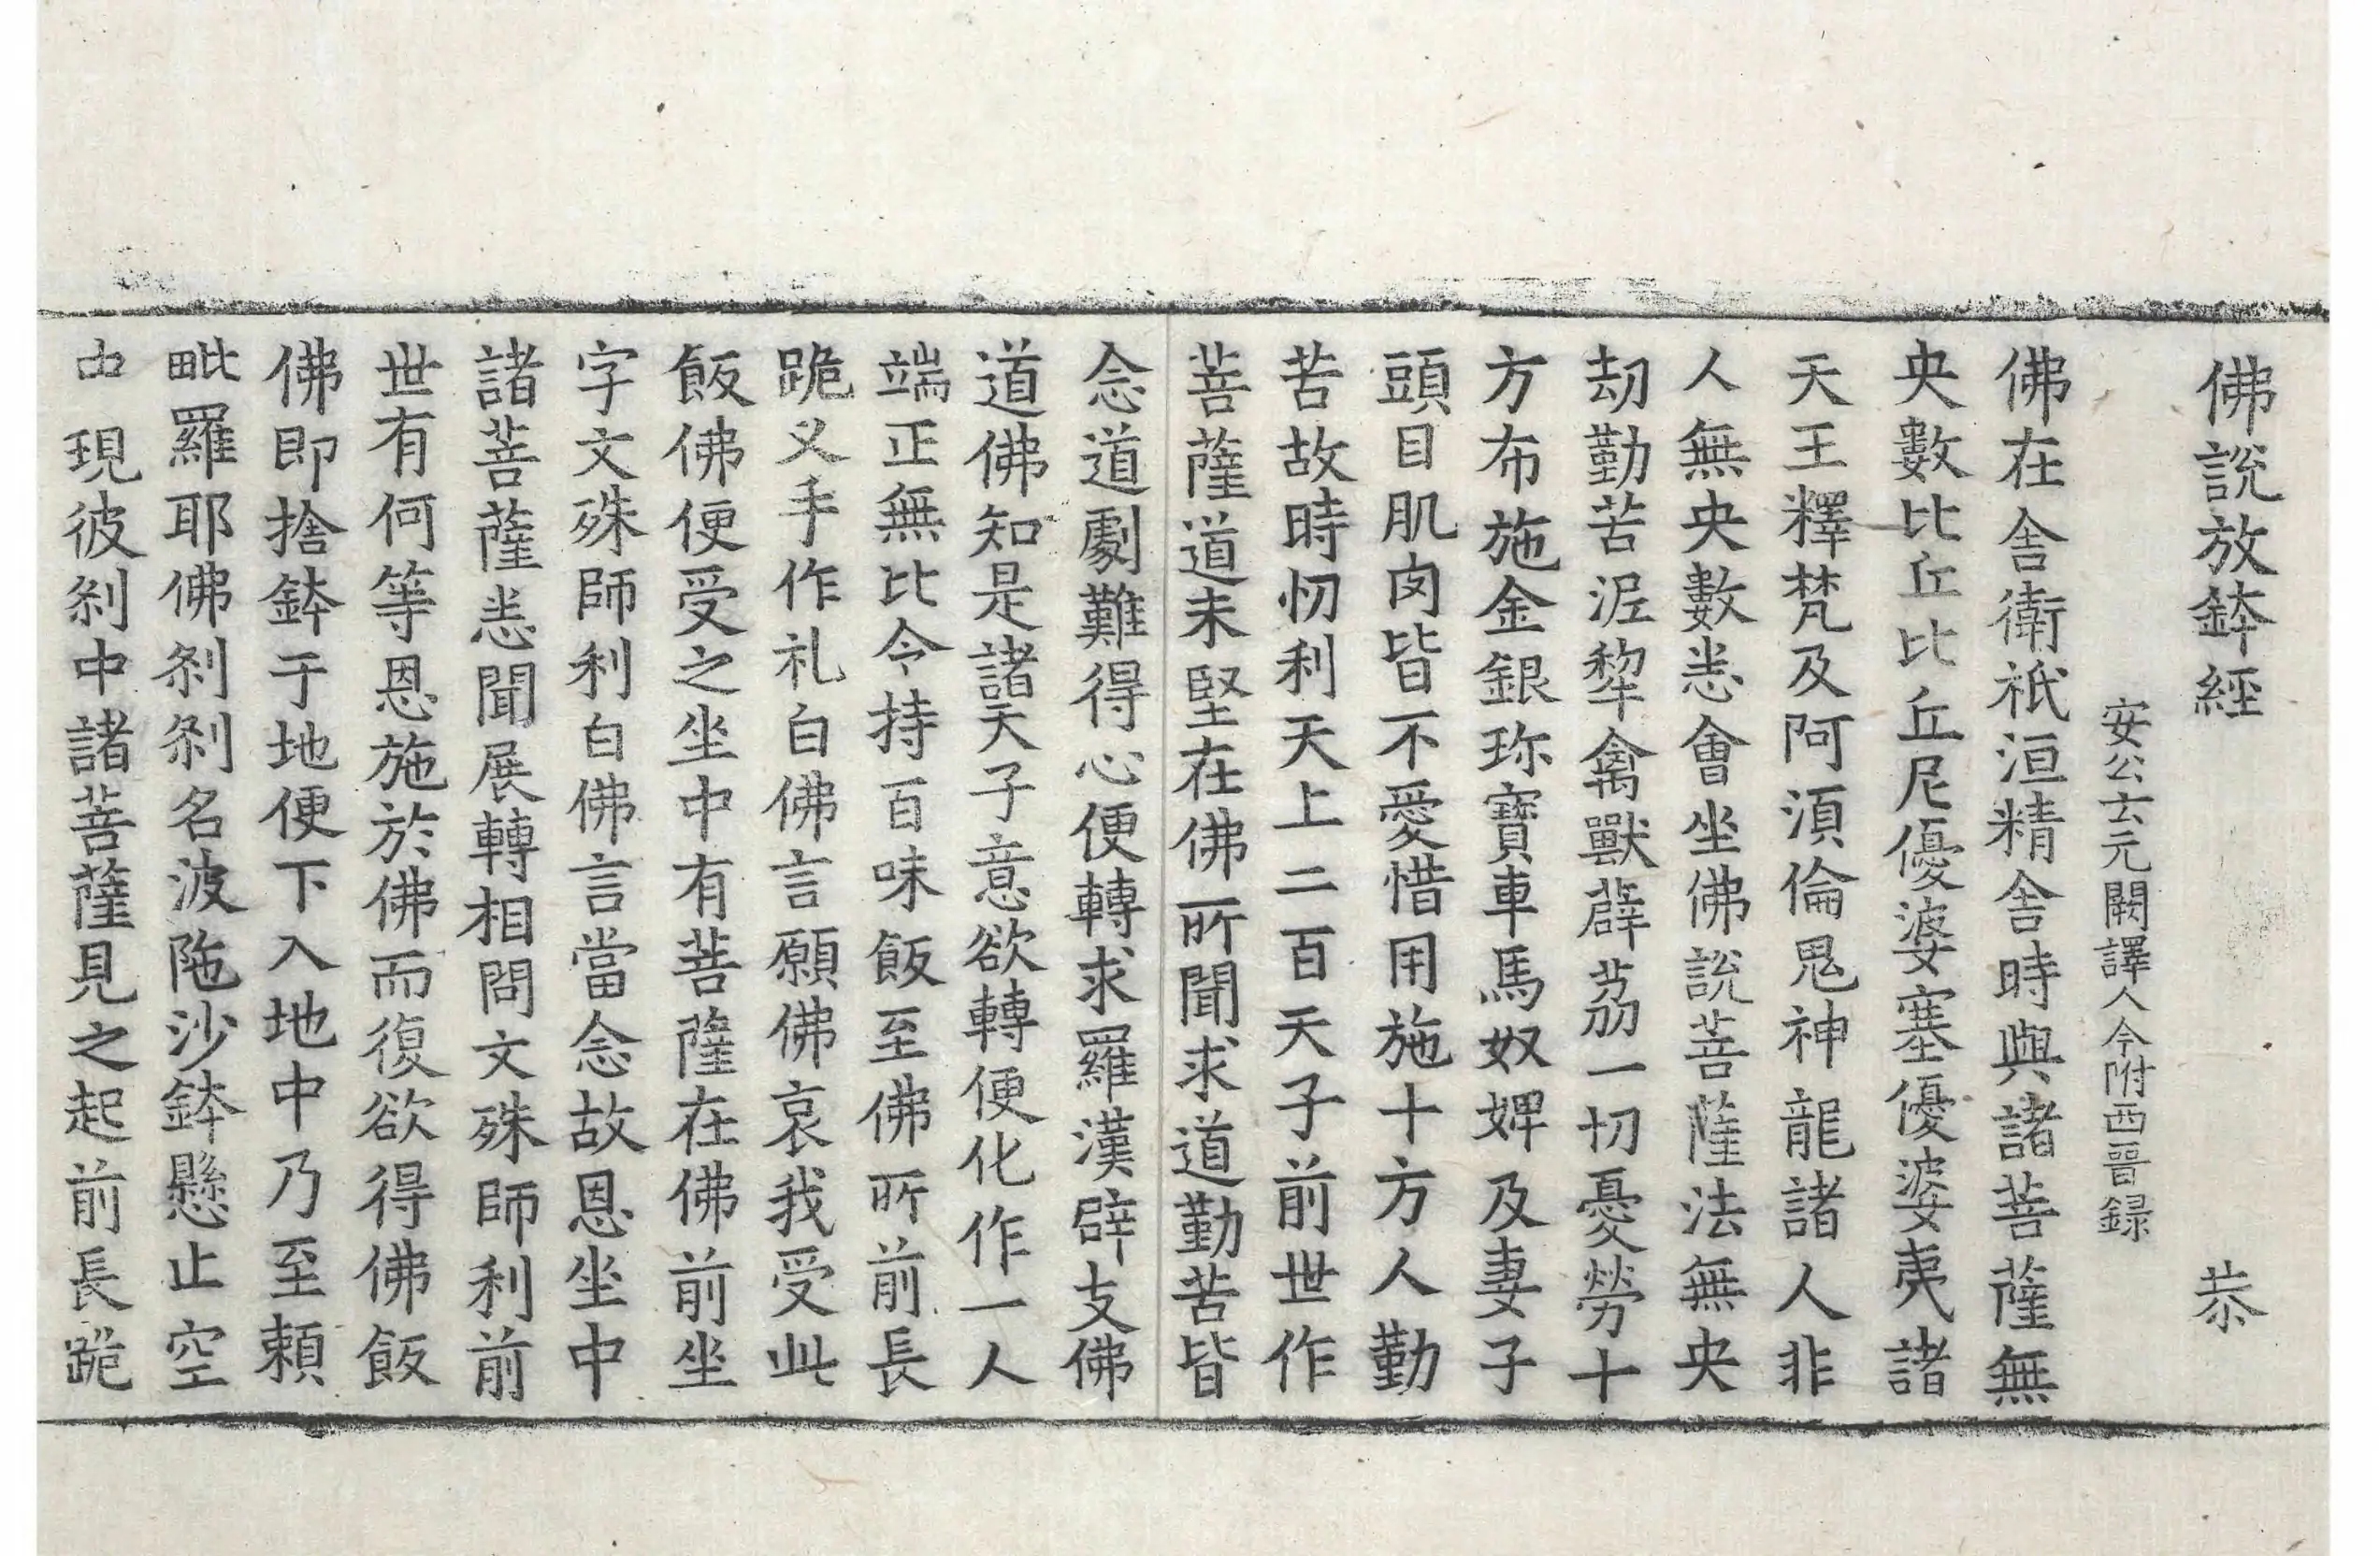 佛説放鉢経 㳟
安公云元闕譯人今附西晉録
佛在舎衛祇洹精舎時與諸菩薩無
央數比丘比丘尼優婆塞優婆夷諸
天王釋梵及阿湏倫鬼神龍諸人非
人無央數悉㑹坐佛説菩薩法無央
劫勤苦泥犂禽獸薜茘一切憂勞十
方布施金銀珎寶車馬奴婢及妻子
頭目肌肉皆不愛惜用施十方人勤
苦故時忉利天上二百天子前世作
菩薩道未堅在佛所聞求道勤苦皆
念道劇難得心便轉求羅漢辟支佛
道佛知是諸天子意欲轉便化作一人
端正無比令持百味飯至佛所前長
跪叉手作礼白佛言願佛哀我受此
飯佛便受之坐中有菩薩在佛前坐
字文殊師利白佛言當念故恩坐中
諸菩薩悉聞展轉相問文殊師利前
世有何等恩施於佛而復欲得佛飯
佛即捨鉢于地便下入地中乃至賴
毗羅耶佛刹刹名波陁沙鉢懸止空
中現彼刹中諸菩薩見之起前長跪